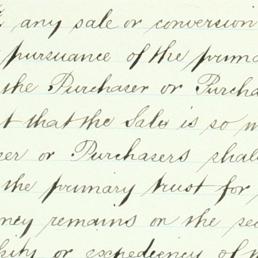 any sale or conversion
pursuance of the prima
the Purchaser or Purcha
t that the Sale is so m
ser or Purchasers shal
the primary trust for
ney remains on the sec
or expediency of